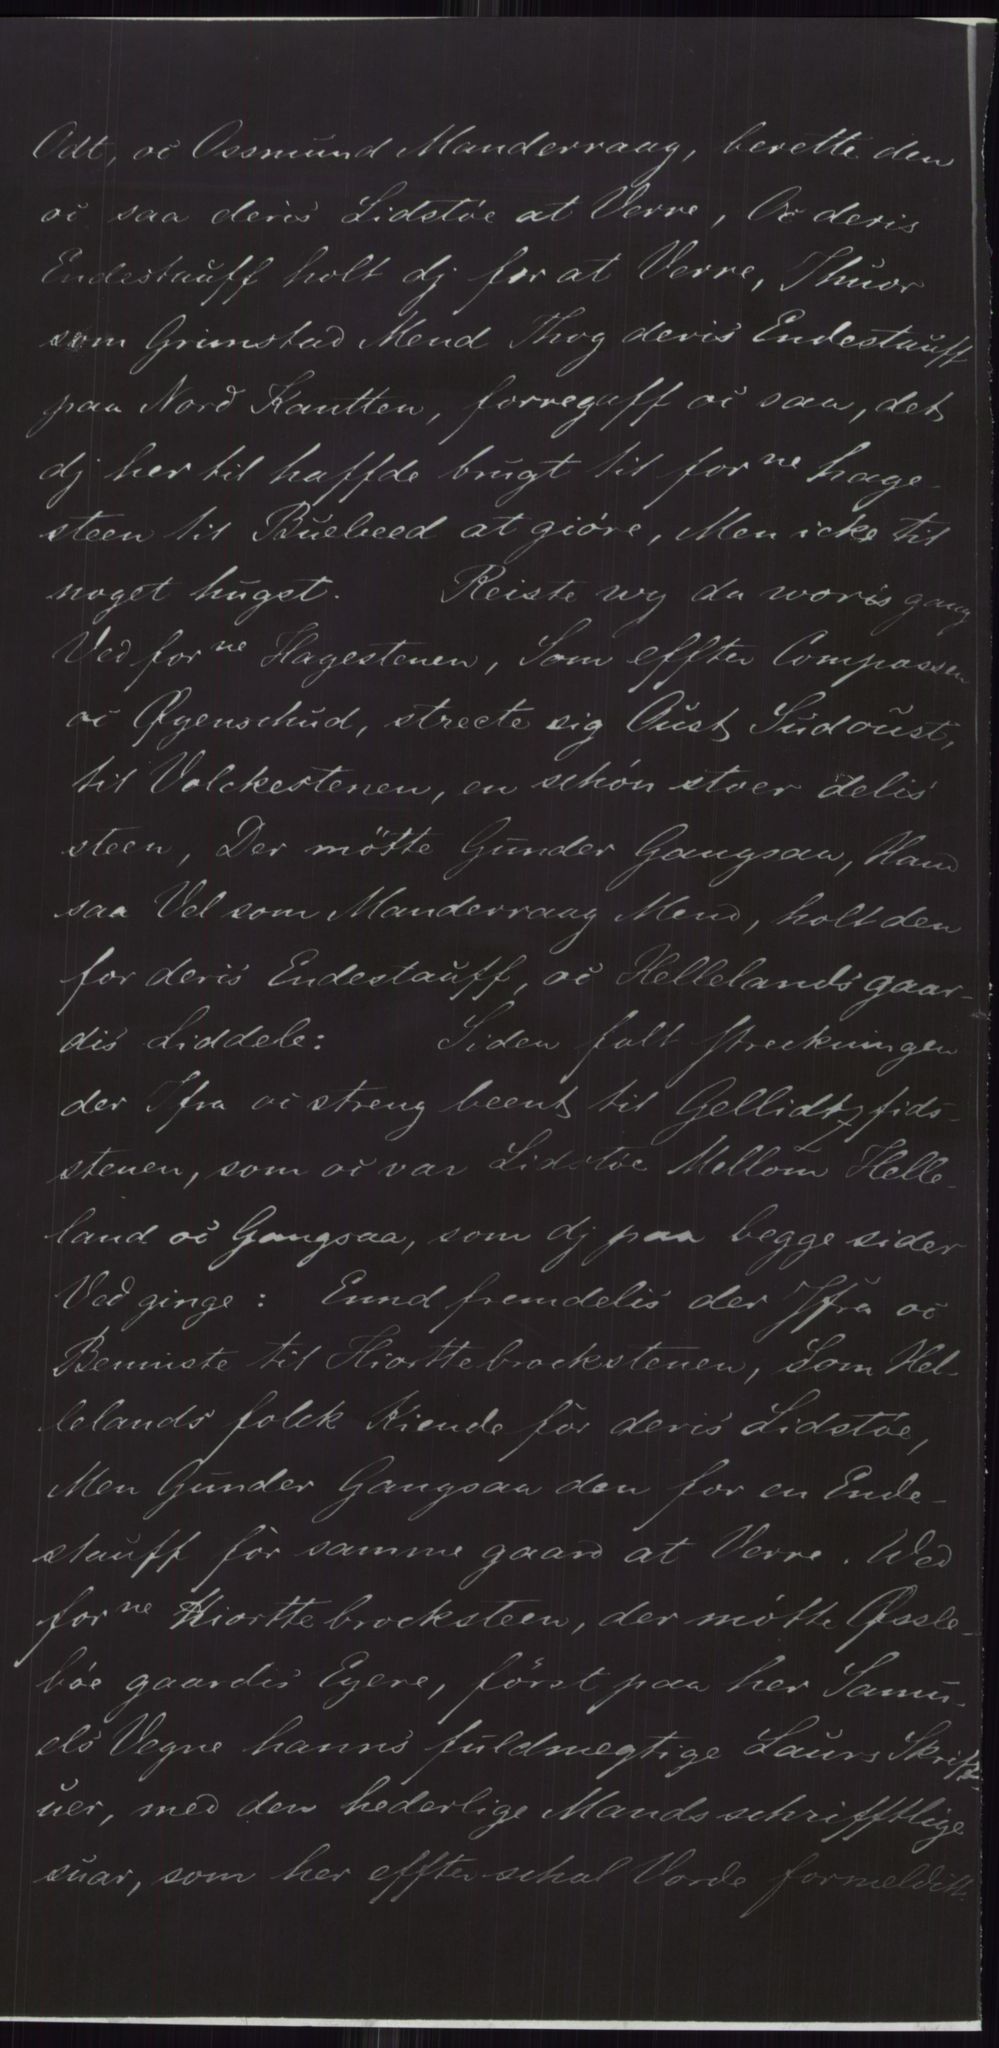 Odt, oc Ossmund Manderraag, berette den
oc saa deris Lidstøe at Verre, Oc deris
Endestauff holt dj for at Verre, Thuor
som Grimstad Mend Thog deris Endestauff
paa Nord Kantten, forregaff oc saa, det
dj her til haffde brugt til for ne hage-
steen til Buebeed at giöre, Men icke til
noget hugst. Reiste wy da woris gang
Ved for ne Hagestenen, Som effter Compassen
oc Øyenschud, strecte sig Oust Sudoust,
til Volckestenen, en schön stoer delis
steen, Der mötte Gunder Gangsaa, Hand
saa Vel som Manderraag Mend, holt den
for deris Endestauff, oc Hellelands gaar-
dis Liddele: Siden falt streckningen
der Ifra oc streng beent til Gellidtzfids-
stenen, som oc var Lidstöe Mellom Helle-
land oc Gangsaa, som dj paa begge sider
Ved ginge: Ennd fremdelis der Ifra oc
Benniste til Hiorttebrockstenen, Som Hel-
lelands folck Kiende för deris Lidstöe,
Men Gunder Gangsaa den for en Ende-
stauff för samme gaard at Verre. Wed
for ne Hiorttebrocksteen, der mötte Øssle-
böe gaardis Eyere, först paa her Samu-
els Vegne hanns fuldmegtige Laurs Skriff-
uer, med den hederlige Mands schrifftlige
suar, som her effter schal Vorde formeldit.